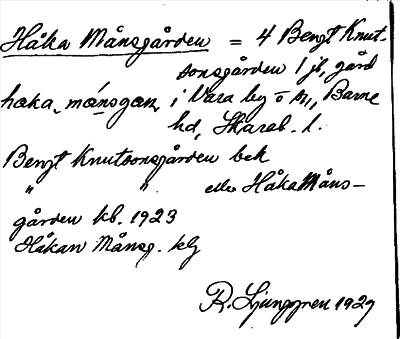 Håka Månsgården = 4 Bengt Knut-
sonsgården 1 jb, gård
haka mánsgan, i Vara by o sn, Barne
hd, Skarab. l.
Bengt Knutsonsgården bek
" " eller Håka Måns-
gården kb. 1923
Håkan Månsg. klg
R. Ljunggren 1929